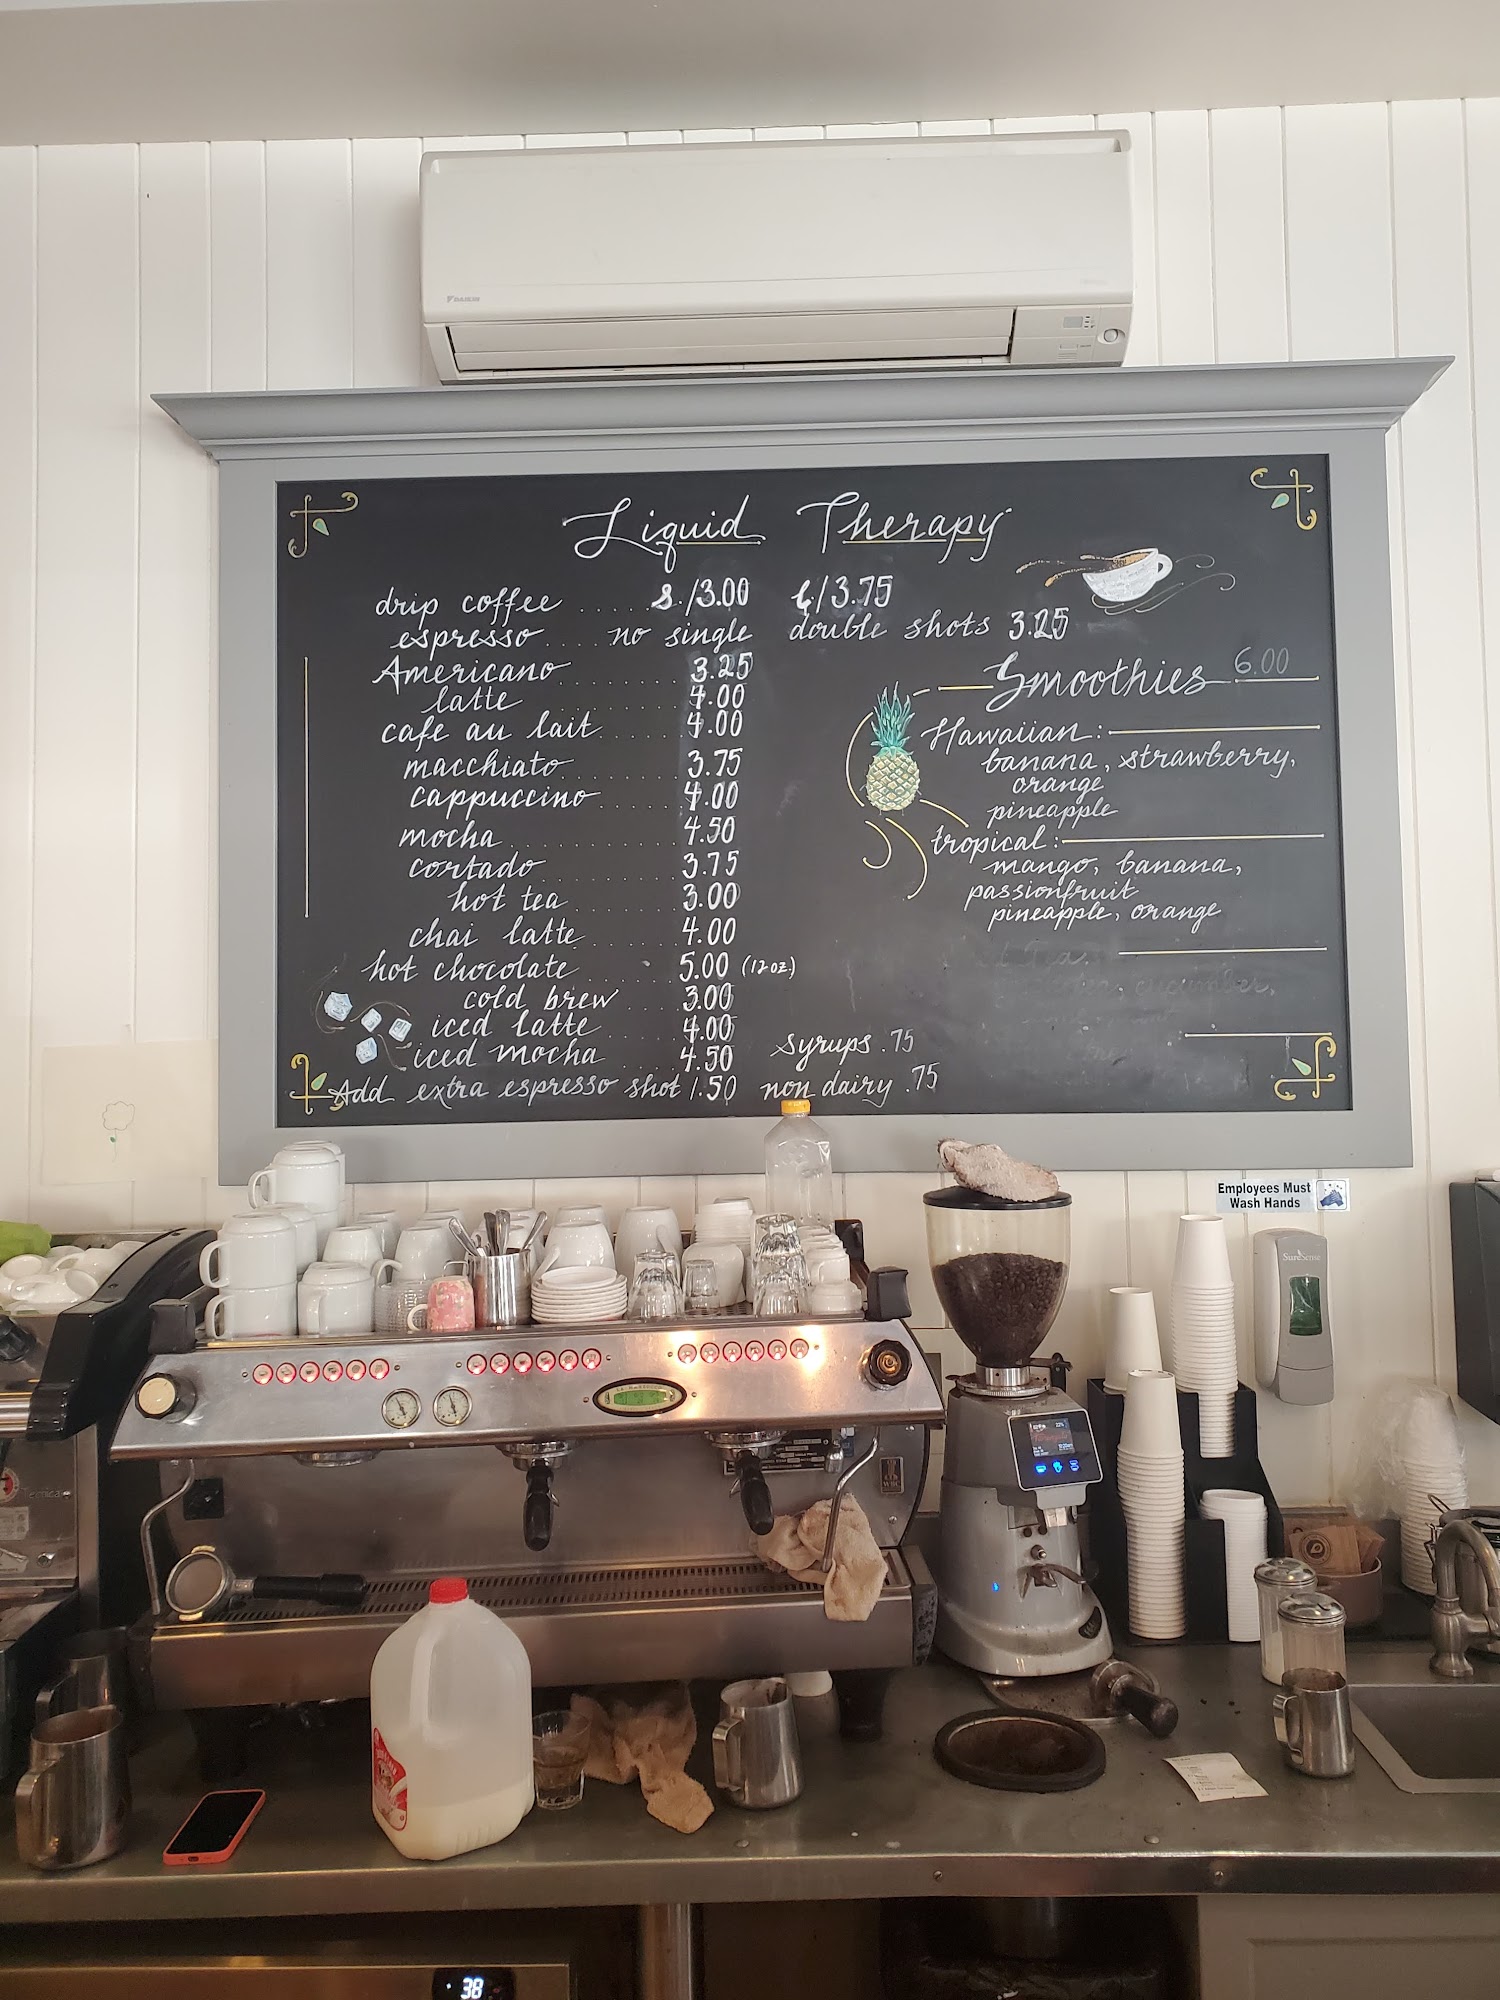 DAIKIN
Liquid Therapy
drip coffee ..... s./3.00 L/3.75
espresso .... no single double shots 3.25
Americano ....... 3.25
latte ....... 4.00
cafe au lait ....... 4.00
macchiato ....... 3.75
cappuccino ....... 4.00
mocha ....... 4.50
cortado ....... 3.75
hot tea ....... 3.00
chai latte ....... 4.00
hot chocolate ....... 5.00 (12 oz.)
cold brew . 3.00
iced latte ... 4.00
iced mocha ... 4.50
Add extra espresso shot 1.50
syrups .75
non dairy .75
Smoothies 6.00
Hawaiian:
banana, strawberry,
orange
pineapple
tropical:
mango, banana,
passionfruit
pineapple, orange
cucumber,
Employees Must
Wash Hands
SureSense
38